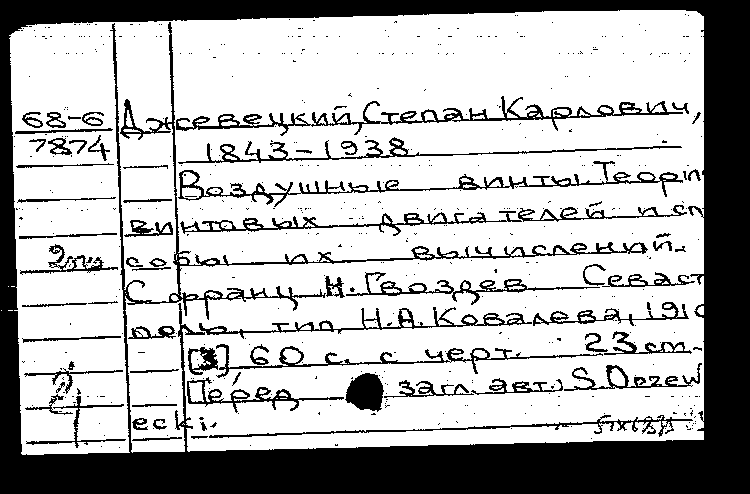 68-6 Джевецкий, Степан Карлович,
7874 1843-1938.
Воздушные винты. Теори
винтовых двигателей и сп
собы их вычислений.
С франц Н. Гвоздев Севаст
поль, тип. Н.А. Ковалева, 191
[3] 60 с. с черт. 23 cm.
Перед загл. авт.: S. Drzew
ecki.